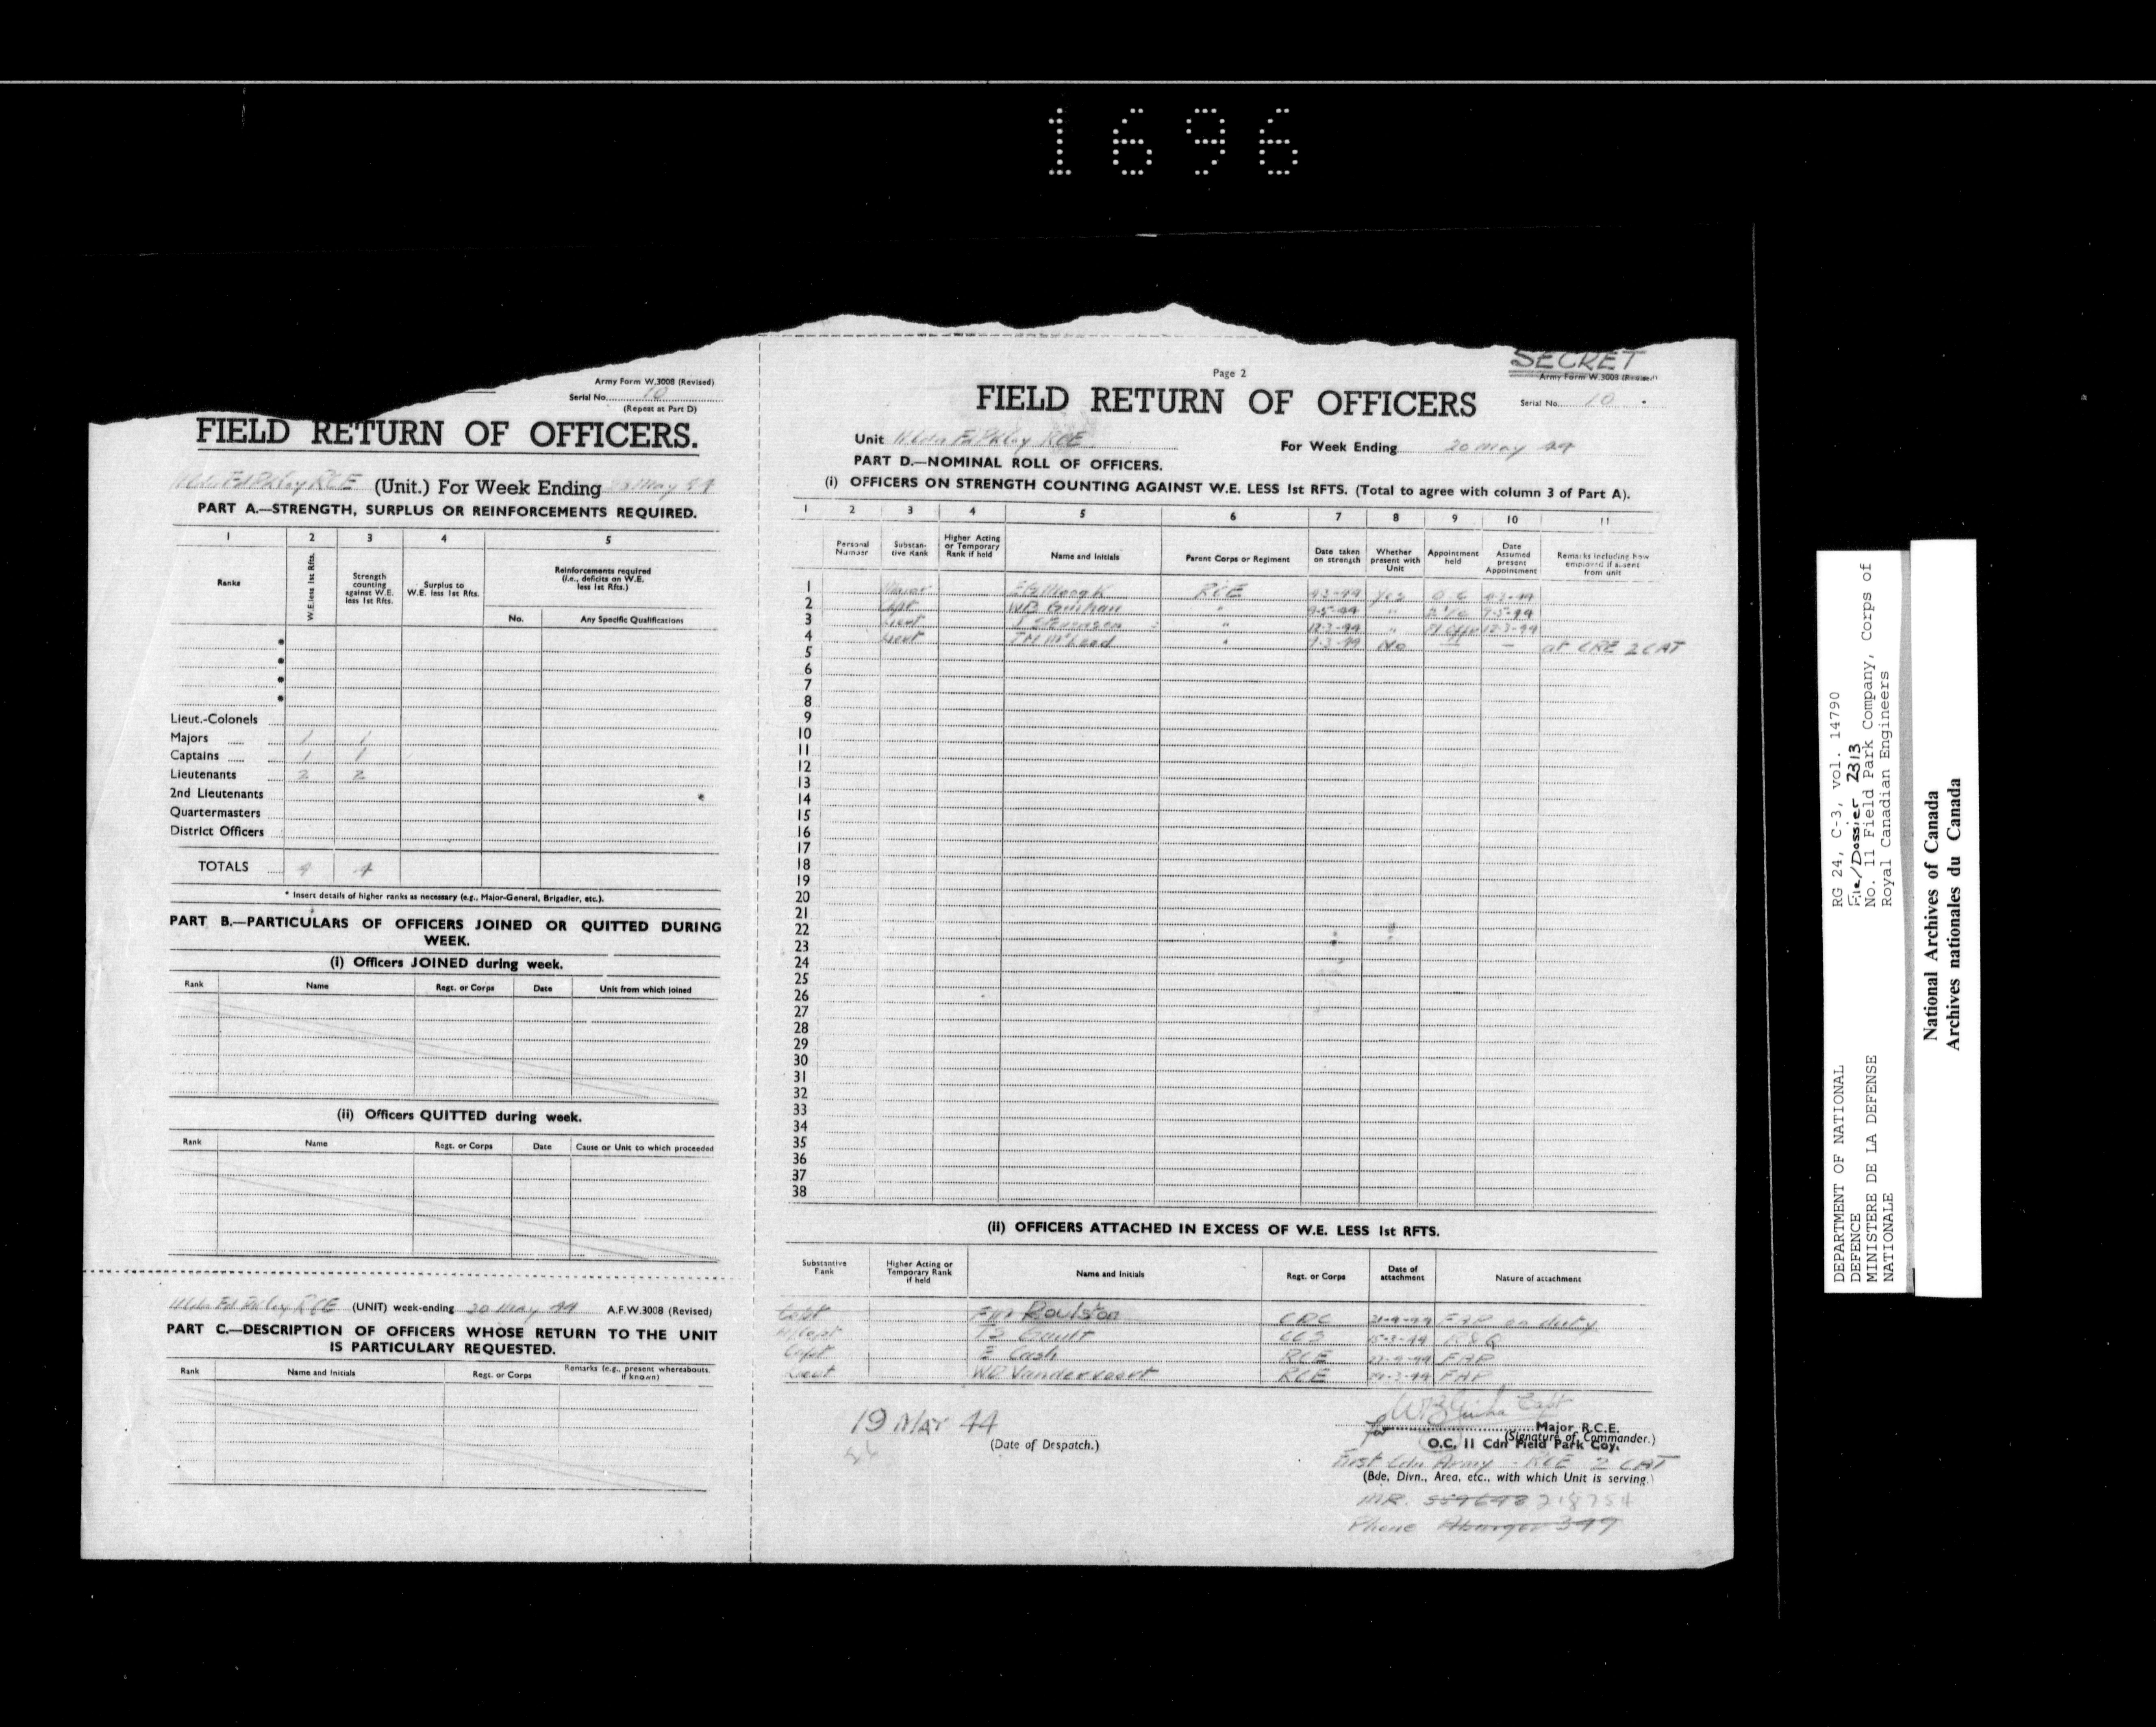 1696
Army Form W.3008 (Revised)
Serial No. 10
(Repeat at Part D)
FIELD RETURN OF OFFICERS.
RCE (Unit.) For Week Ending 20 May 44
PART A.—STRENGTH, SURPLUS OR REINFORCEMENTS REQUIRED.
1 2 3 4 5
Ranks
W.E. less 1st Rfts.
Strength counting against W.E. less 1st Rfts.
Surplus to W.E. less 1st Rfts.
Reinforcements required (i.e., deficits on W.E. less 1st Rfts.)
No. Any Specific Qualifications
Lieut.-Colonels
Majors 1 1
Captains 1 1
Lieutenants 2 2
2nd Lieutenants
Quartermasters
District Officers
TOTALS 4 4
* Insert details of higher ranks as necessary (e.g., Major-General, Brigadier, etc.).
PART B.—PARTICULARS OF OFFICERS JOINED OR QUITTED DURING
WEEK.
(i) Officers JOINED during week.
Rank Name Regt. or Corps Date Unit from which joined
(ii) Officers QUITTED during week.
Rank Name Regt. or Corps Date Cause or Unit to which proceeded
RCE (UNIT) week-ending 20 May 44 A.F.W.3008 (Revised)
PART C.—DESCRIPTION OF OFFICERS WHOSE RETURN TO THE UNIT
IS PARTICULARY REQUESTED.
Rank Name and Initials Regt. or Corps Remarks (e.g., present whereabouts, if known)
SECRET
Page 2
Army Form W.3008 (Revised)
FIELD RETURN OF OFFICERS
Serial No. 10
Unit RCE For Week Ending 20 May 44
PART D.—NOMINAL ROLL OF OFFICERS.
(i) OFFICERS ON STRENGTH COUNTING AGAINST W.E. LESS 1st RFTS. (Total to agree with column 3 of Part A).
1 2 3 4 5 6 7 8 9 10 11
Personal Number
Substantive Rank
Higher Acting or Temporary Rank if held
Name and Initials
Parent Corps or Regiment
Date taken on strength
Whether present with Unit
Appointment held
Date Assumed present Appointment
Remarks including how employed if absent from unit
1 Major RCE Yes O C
2 Capt " 9-5-44 " 2 i/c 9-5-44
3 Lieut " 12-3-44 " 12-3-44
4 Lieut McLeod " No — — at CRE 2 CAT
5
6
7
8
9
10
11
12
13
14
15
16
17
18
19
20
21
22
23
24
25
26
27
28
29
30
31
32
33
34
35
36
37
38
(ii) OFFICERS ATTACHED IN EXCESS OF W.E. LESS 1st RFTS.
Substantive Rank
Higher Acting or Temporary Rank if held
Name and Initials
Regt. or Corps
Date of attachment
Nature of attachment
Capt Roulston CDC on duty
TS Gault
Capt E Cash RCE
Lieut WD Vandervoort RCE
19 Mar 44
(Date of Despatch.)
Capt
for Major R.C.E.
(Signature of Commander.)
O.C. 11 Cdn Field Park Coy.
First Cdn Army - RCE 2 CAT
(Bde, Divn., Area, etc., with which Unit is serving.)
MR. 218754
Phone 349
RG 24, C-3, vol. 14790
File/Dossier 2313
No. 11 Field Park Company, Corps of
Royal Canadian Engineers
DEPARTMENT OF NATIONAL
DEFENCE
MINISTERE DE LA DEFENSE
NATIONALE
National Archives of Canada
Archives nationales du Canada